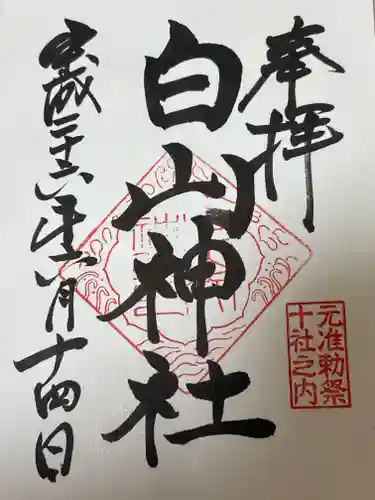 奉拝
白山神社
元准勅祭
十社之内
平成二十六年六月十四日